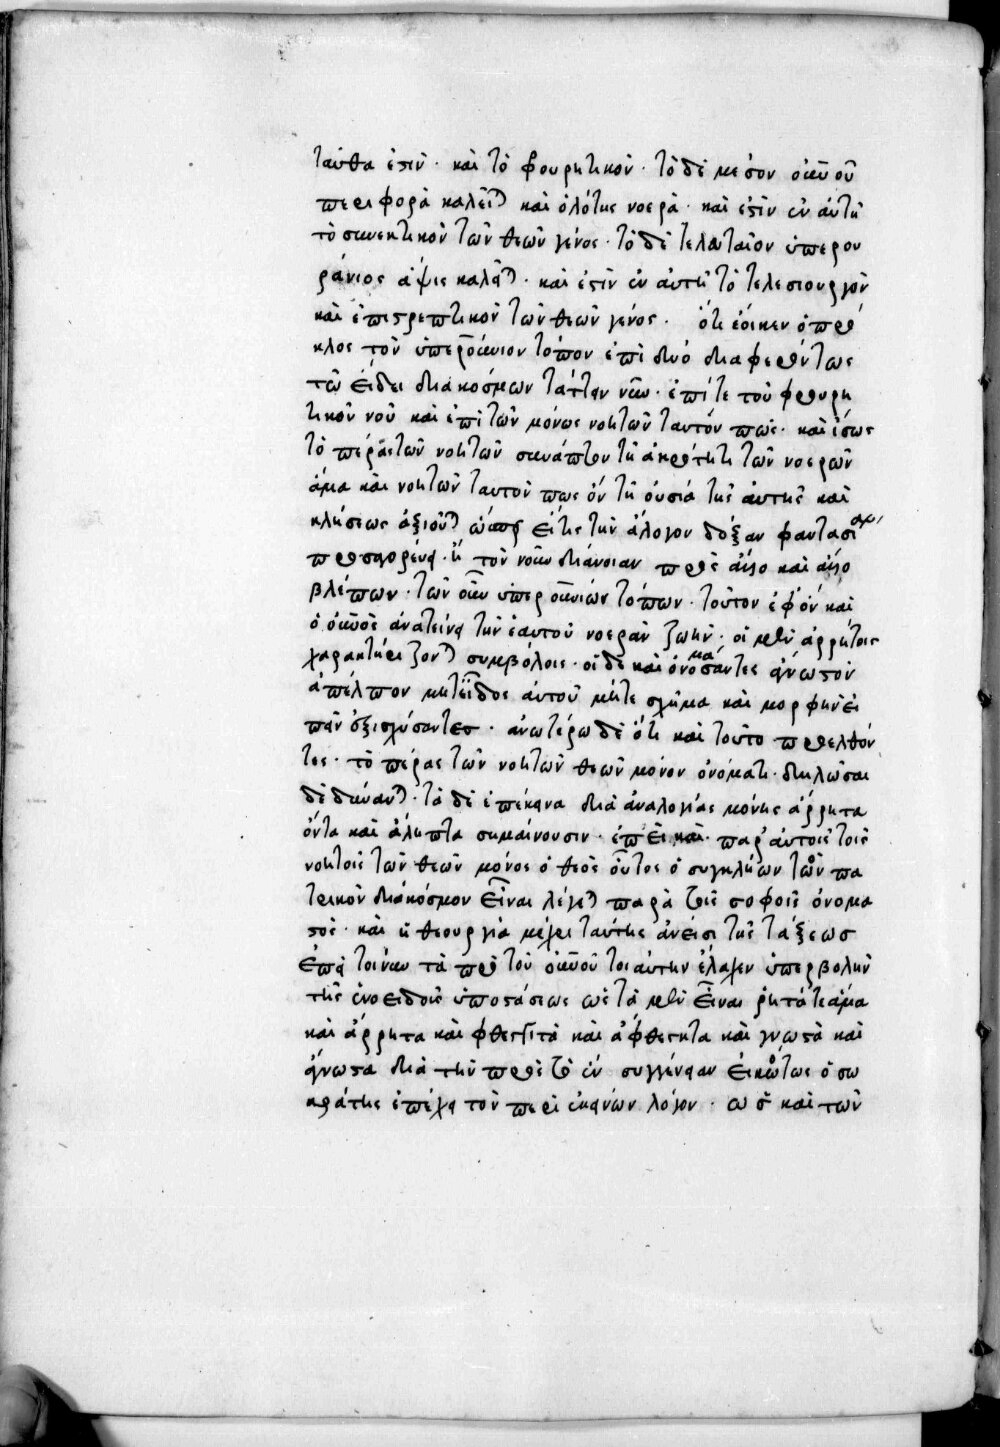 ταῦθα ἐστὶν · καὶ τὸ φουρητικὸν · τὸ δὲ μέσον οὐνοῦ
περιφορὰ καλεῖτ καὶ ὁλότης νοερά · καὶ ἐστὶν ἐν αὐτῆ
τὸ συνεκτικὸν τῶν θεῶν γένος · τὸ δὲ τελευταῖον ὑπερου
ράνιος ἁψὶς καλεῖτ · καὶ ἐστὶν ἐν αὐτῆ τὸ τελεσιουργὸν
καὶ ἐπιστρεπτικὸν τῶν θεῶν γένος · ὅτι ἔοικεν ὁ πρό
κλος τὸν ὑπερουράνιον τόπον ἐπὶ δυό διαφερόντως
τῶ εἴδει διακόσμων τάττειν νῦν · ἐπί τε τοῦ φρουρη
τικοῦ νοῦ καὶ ἐπὶ τῶν μόνως νοητῶν ταυτόν πως · καὶ ἴσως
τὸ πέρας τῶν νοητῶν συνάπτον τῆ ἀκρότητι τῶν νοερῶν
ἅμα καὶ νοητῶν ταυτόν πως ὂν τῆ οὐσία τῆς αὐτῆς καὶ
κλήσεως ἀξιοῦτ ὥσπερ εἴ τις τὴν ἄλογον δόξαν φαντασίαν
προσαγορεύει · ἢ τὸν νοῦν διάνοιαν πρὸς ἄλλο καὶ ἄλλο
βλέπων · τῶν οὖν ὑπερουνιών τόπων · τοῦτον ἐφ' ὃν καὶ
ὁ οὐνὸς ἀνατείνει τὴν ἑαυτοῦ νοερὰν ζωὴν · οἱ μὲν ἀρρήτοις
χαρακτηρίζοντ συμβόλοις · οἱ δὲ καὶ ὀνομάσαντες ἄγνωστον
ἀπέλιπον μητεῖδος αὐτοῦ μήτε σχῆμα καὶ μορφὴν εἰ
πεῖν ἐξισχύσαντες · ἀνωτέρω δὲ ὅτι καὶ τοῦτο προελθόν
τες · τὸ πέρας τῶν νοητῶν θεῶν μόνον ὀνόματι · δηλῶσαι
δεδύνανται · τὰ δὲ ἐπέκεινα διὰ ἀναλογίας μόνης ἄρρητα
ὄντα καὶ ἄληπτα σημαίνουσιν · ἐπεὶ καὶ · παρ' αὐτοῖς τοῖς
νοητοῖς τῶν θεῶν μόνος ὁ θεὸς οὗτος ὁ συγκλείων τὸν πα
τρικὸν διάκόσμον εἶναι λέγετ παρὰ τοῖς σοφοῖς ὀνομα
στός · καὶ ἡ θεουργία μέχρι ταύτης ἄνεισι τῆς τάξεως
ἐπεὶ τοίνυν τὰ πρὸ τοῦ οὐνοῦ τοιαύτην ἔλαχεν ὑπερβολὴν
τῆς ἑνοειδοῦς ὑποστάσεως ὡς τὰ μὲν εἶναι ῥητά τε ἅμα
καὶ ἄρρητα καὶ φθεγκτὰ καὶ ἄφθεγκτα καὶ γνωστὰ καὶ
ἄγνωστα διὰ τὴν πρὸς τὸ ἓν συγγένειαν εἰκότως ὁ σω
κράτης ἐπέχει τὸν περὶ ἐκείνων λόγον · καὶ τῶν